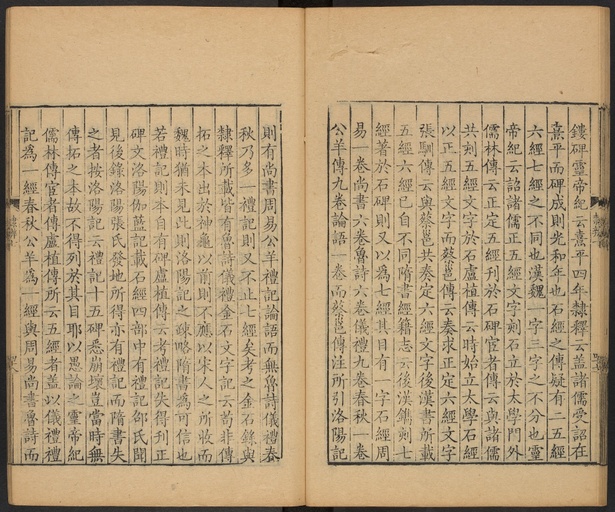 鏤碑靈帝紀云熹平四年隸釋云盖諸儒受詔在
熹平而碑成則光和年也石經之傳疑有二五經
六經七經之不同也漢魏一字三字之不分也靈
帝紀云詔諸儒正五經文字刻石立於太學門外
儒林傳云正定五經刊於石碑宦者傳云與諸儒
共刻五經文字於石盧植傳云時始立太學石經
以正五經文字而蔡邕傳云奏求正定六經文字
張馴傳云與蔡邕共奏定六經文字後漢書所載
五經六經已自不同隋書經籍志云後漢鐫刻七
經著於石碑則又以為七經其目有一字石經周
易一卷尚書六卷魯詩六卷儀禮九卷春秋一卷
公羊傳九卷論語一卷而蔡邕傳注所引洛陽記
則有尚書周易公羊禮記論語而無魯詩儀禮春
秋乃多一禮記則又不止七經矣考之金石錄與
隸釋所載皆有魯詩儀禮金石文字記云苟非傳
拓之本出於神龜以前則不應以宋人之所收而
魏時猶未見此則洛陽記之疎略隋書為可信也
若禮記則本自有碑盧植傳云考禮記失得刊正
碑文洛陽伽藍記載石經四部中有禮記邵氏聞
見後錄洛陽張氏發地所得亦有禮記而隋書失
之者按洛陽記云禮記十五碑悉崩壞豈當時無
傳拓之本故不得列於其目耶以愚論之靈帝紀
儒林傳宦者傳盧植傳所云五經者盖以儀禮禮
記為一經春秋公羊為一經與周易尚書魯詩而